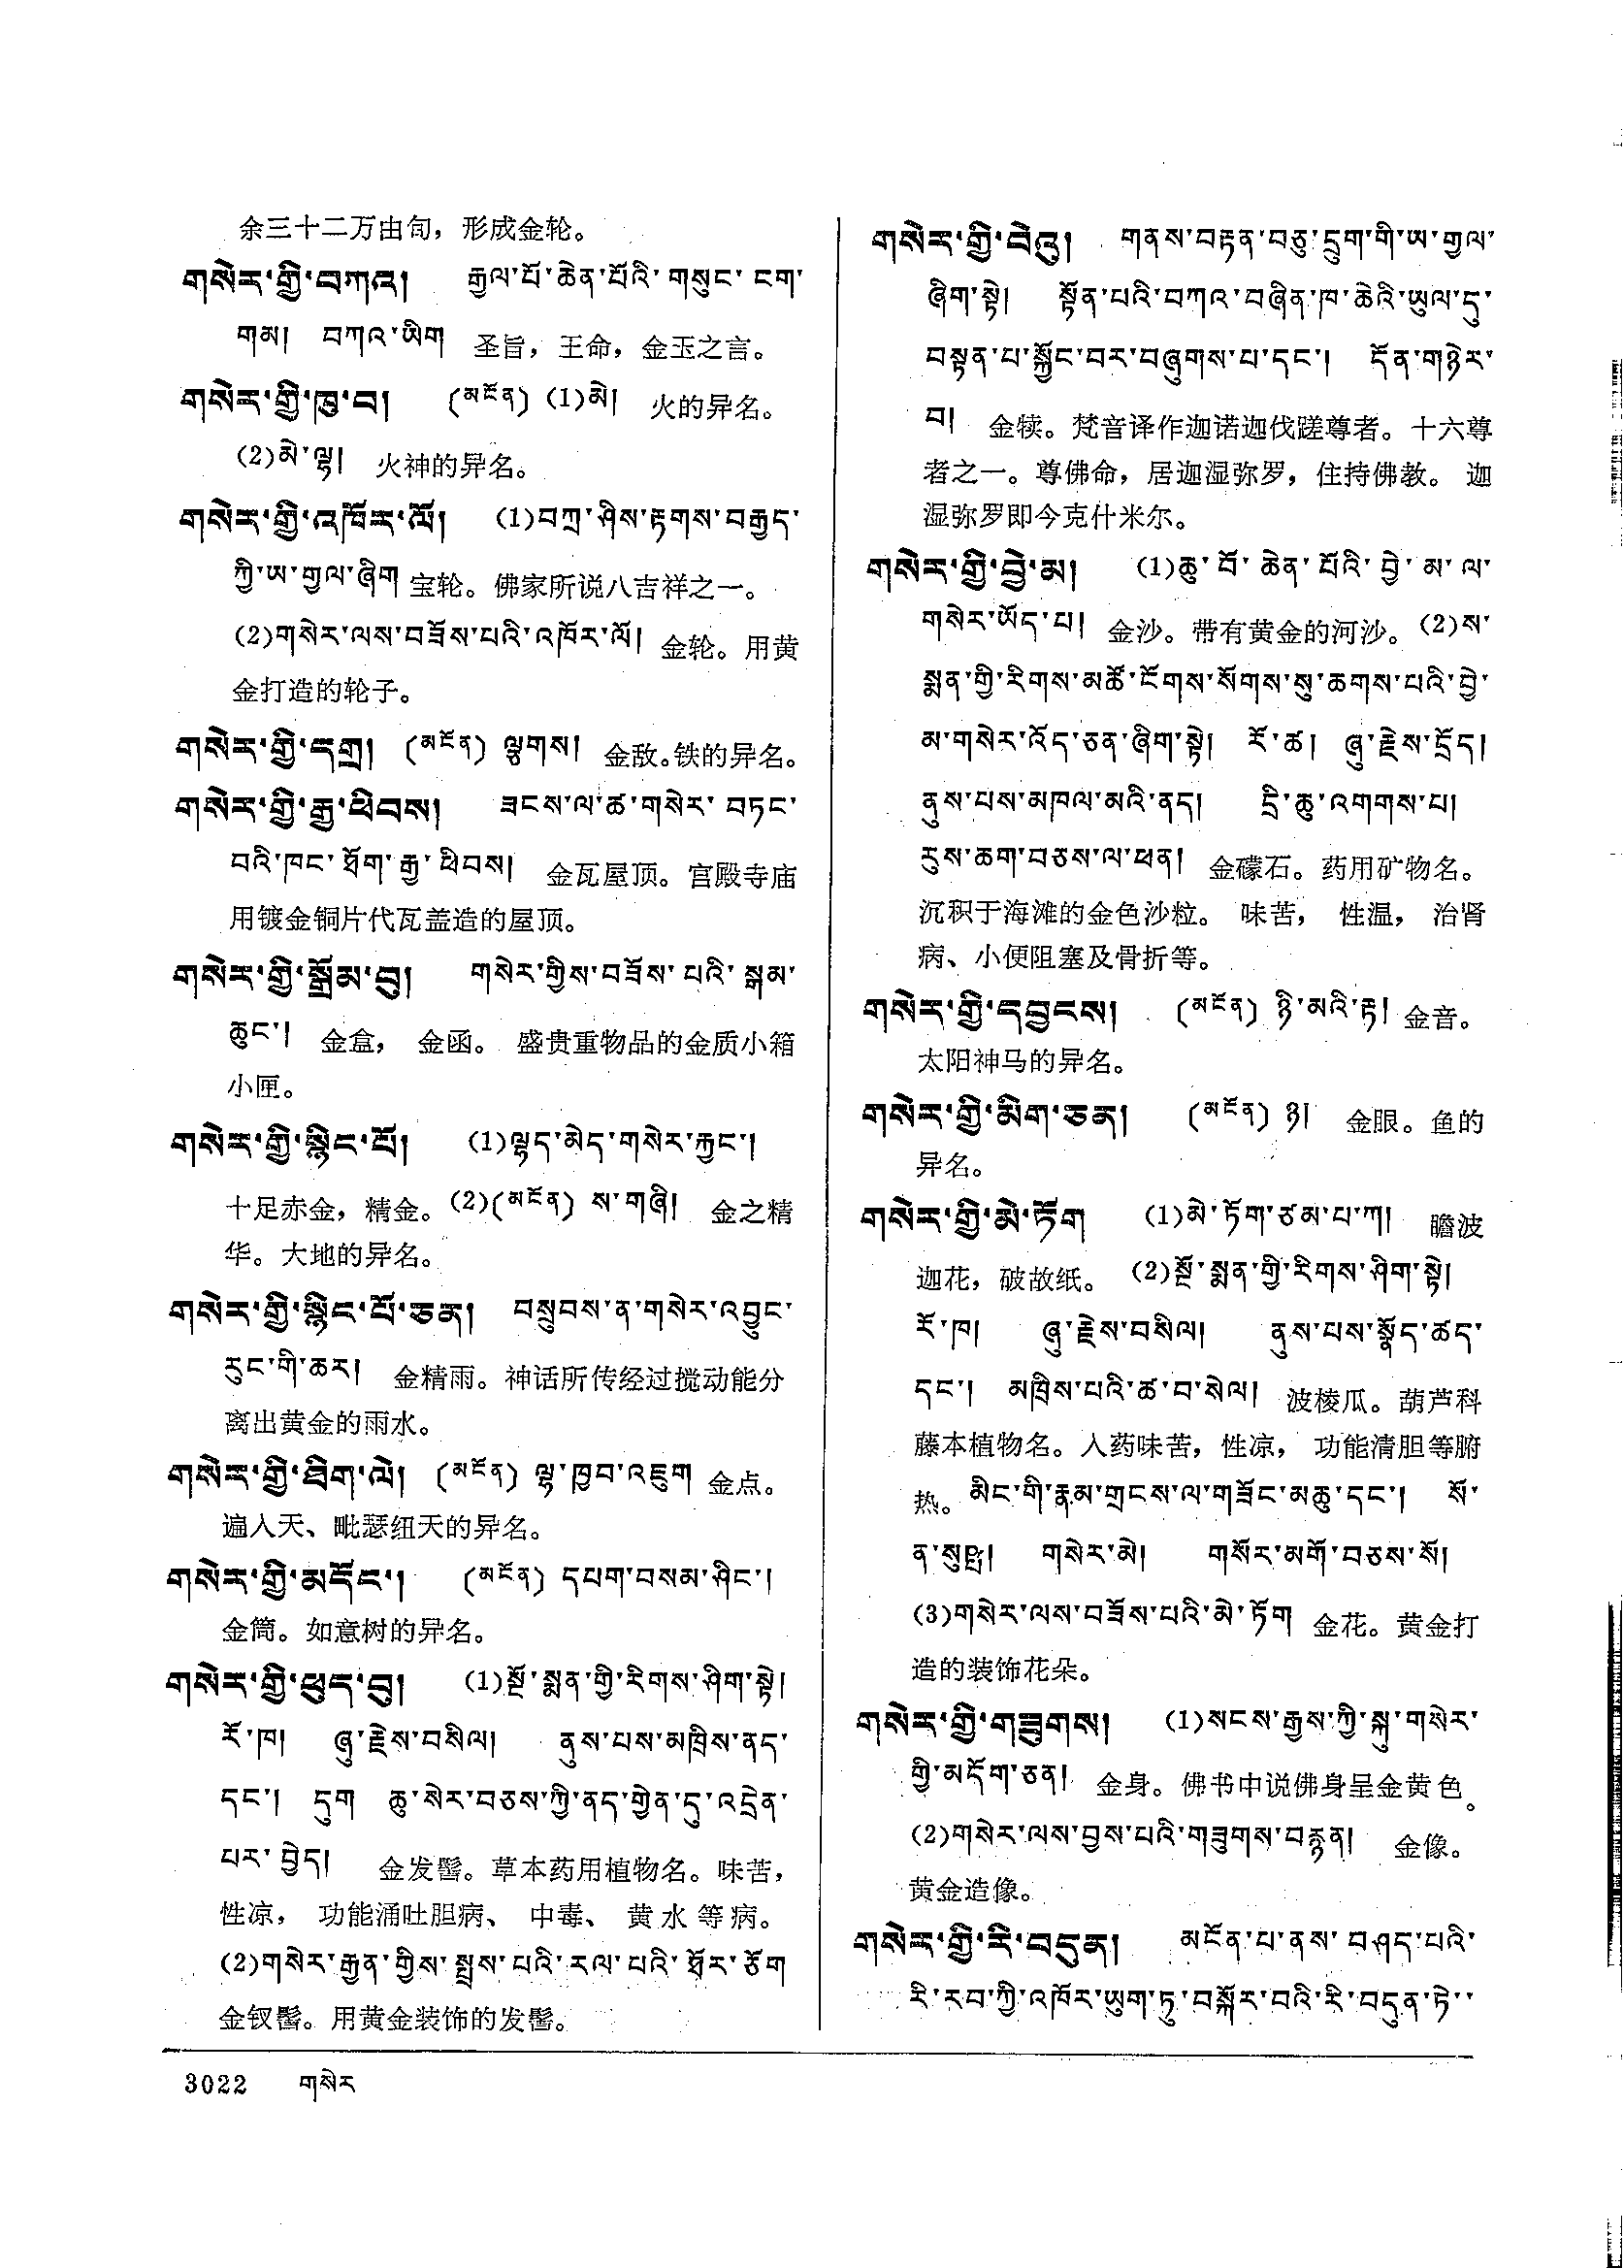 余三十二万由旬，形成金轮。
གསེར་གྱི་བཀའ། རྒྱལ་པོ་ཆེན་པོའི་གསུང་ངག་
གམ། བཀའ་ཡིག 圣旨，王命，金玉之言。
གསེར་གྱི་ཁུ་བ། (མངོན) (1)མེ། 火的异名。
(2)མེ་ལྷ། 火神的异名。
གསེར་གྱི་འཁོར་ལོ། (1)བཀྲ་ཤིས་རྟགས་བརྒྱད་
ཀྱི་ཨ་གྱལ་ཞིག 宝轮。佛家所说八吉祥之一。
(2)གསེར་ལས་བཟོས་པའི་འཁོར་ལོ། 金轮。用黄
金打造的轮子。
གསེར་གྱི་དགྲ། (མངོན) ལྕགས། 金敌。铁的异名。
གསེར་གྱི་རྒྱ་ཕིབས། ཟངས་ལ་ཚ་གསེར་བཏང་
བའི་ཁང་ཐོག་རྒྱ་ཕིབས། 金瓦屋顶。宫殿寺庙
用镀金铜片代瓦盖造的屋顶。
གསེར་གྱི་སྒྲོམ་བུ། གསེར་གྱིས་བཟོས་པའི་སྒམ་
ཆུང་། 金盒， 金函。 盛贵重物品的金质小箱
小匣。
གསེར་གྱི་སྙིང་པོ། (1)ལྷད་མེད་གསེར་རྐྱང་།
十足赤金，精金。(2)(མངོན) ས་གཞི། 金之精
华。大地的异名。
གསེར་གྱི་སྙིང་པོ་ཅན། བསྲུབས་ན་གསེར་འབྱུང་
རུང་གི་ཆར། 金精雨。神话所传经过搅动能分
离出黄金的雨水。
གསེར་གྱི་ཐིག་ལེ། (མངོན) ལྷ་ཁྱབ་འཇུག 金点。
遍入天、毗瑟纽天的异名。
གསེར་གྱི་མདོང་། (མངོན) དཔག་བསམ་ཤིང་།
金筒。如意树的异名。
གསེར་གྱི་ཕུད་བུ། (1)སྔོ་སྨན་གྱི་རིགས་ཤིག་སྟེ།
རོ་ཁ། ཞུ་རྗེས་བསིལ། ནུས་པས་མཁྲིས་ནད་
དང་། དུག ཆུ་སེར་བཅས་ཀྱི་ནད་གྱེན་དུ་འདྲེན་
པར་བྱེད། 金发髻。草本药用植物名。味苦，
性凉， 功能涌吐胆病、 中毒、 黄水等病。
(2)གསེར་རྒྱན་གྱིས་སྤྲས་པའི་རལ་པའི་ཐོར་ཅོག
金钗髻。用黄金装饰的发髻。
གསེར་གྱི་བེའུ། གནས་བརྟན་བཅུ་དྲུག་གི་ཨ་གྱལ་
ཞིག་སྟེ། སྟོན་པའི་བཀའ་བཞིན་ཁ་ཆེའི་ཡུལ་དུ་
བསྟན་པ་སྐྱོང་བར་བཞུགས་པ་དང་། དོན་གཉེར་
བ། 金犊。梵音译作迦诺迦伐蹉尊者。十六尊
者之一。尊佛命，居迦湿弥罗，住持佛教。 迦
湿弥罗即今克什米尔。
གསེར་གྱི་བྱེ་མ། (1)ཆུ་བོ་ཆེན་པོའི་བྱེ་མ་ལ་
གསེར་ཡོད་པ། 金沙。带有黄金的河沙。(2)ས་
སྨན་གྱི་རིགས་མཚོ་ངོགས་སོགས་སུ་ཆགས་པའི་བྱེ་
མ་གསེར་འོད་ཅན་ཞིག་སྟེ། རོ་ཚ། ཞུ་རྗེས་དྲོད།
ནུས་པས་མཁལ་མའི་ནད། དྲི་ཆུ་འགགས་པ།
རུས་ཆག་བཅས་ལ་ཕན། 金礞石。药用矿物名。
沉积于海滩的金色沙粒。 味苦， 性温， 治肾
病、小便阻塞及骨折等。
གསེར་གྱི་དབྱངས། (མངོན) ཉི་མའི་རྟ། 金音。
太阳神马的异名。
གསེར་གྱི་མིག་ཅན། (མངོན) ཉ། 金眼。鱼的
异名。
གསེར་གྱི་མེ་ཏོག (1)མེ་ཏོག་ཙམ་པ་ཀ། 瞻波
迦花，破故纸。 (2)སྔོ་སྨན་གྱི་རིགས་ཤིག་སྟེ།
རོ་ཁ། ཞུ་རྗེས་བསིལ། ནུས་པས་སྣོད་ཚད་
དང་། མཁྲིས་པའི་ཚ་བ་སེལ། 波棱瓜。葫芦科
藤本植物名。入药味苦，性凉， 功能清胆等腑
热。མིང་གི་རྣམ་གྲངས་ལ་གཟོང་མཆུ་དང་། སོ་
ན་སུཏྲ། གསེར་མེ། གསོར་མགོ་བཅས་སོ།
(3)གསེར་ལས་བཟོས་པའི་མེ་ཏོག 金花。黄金打
造的装饰花朵。
གསེར་གྱི་གཟུགས། (1)སངས་རྒྱས་ཀྱི་སྐུ་གསེར་
གྱི་མདོག་ཅན། 金身。佛书中说佛身呈金黄色。
(2)གསེར་ལས་བྱས་པའི་གཟུགས་བརྙན། 金像。
黄金造像。
གསེར་གྱི་རི་བདུན། མངོན་པ་ནས་བཤད་པའི་
རི་རབ་ཀྱི་འཁོར་ཡུག་ཏུ་བསྐོར་བའི་རི་བདུན་ཏེ་
3022 གསེར